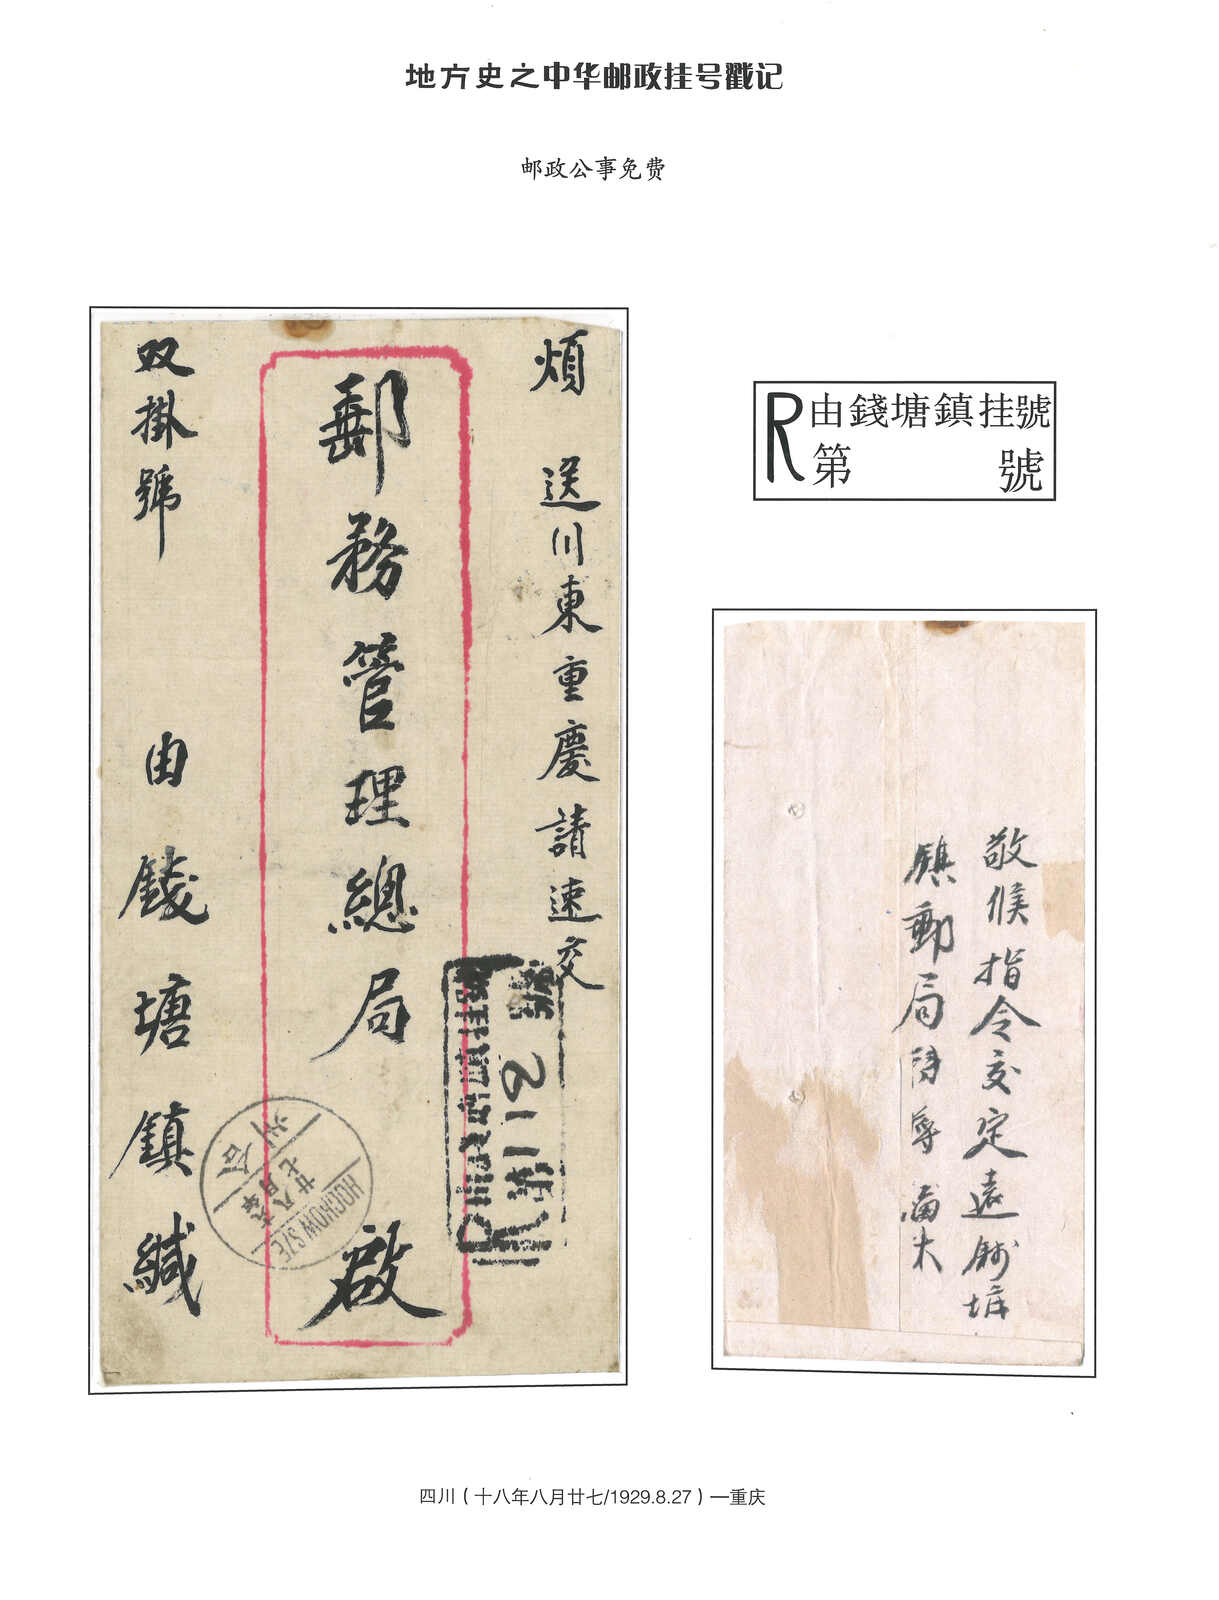 地方史之中华邮政挂号戳记
邮政公事免费
煩 送川東重慶請速交
郵務管理總局 啟
双掛號 由錢塘鎮緘
HOCHOW S/E
R
由錢塘鎮挂號
第 號
敬候指令交定遠
鎮郵局
四川（十八年八月廿七/1929.8.27）—重庆